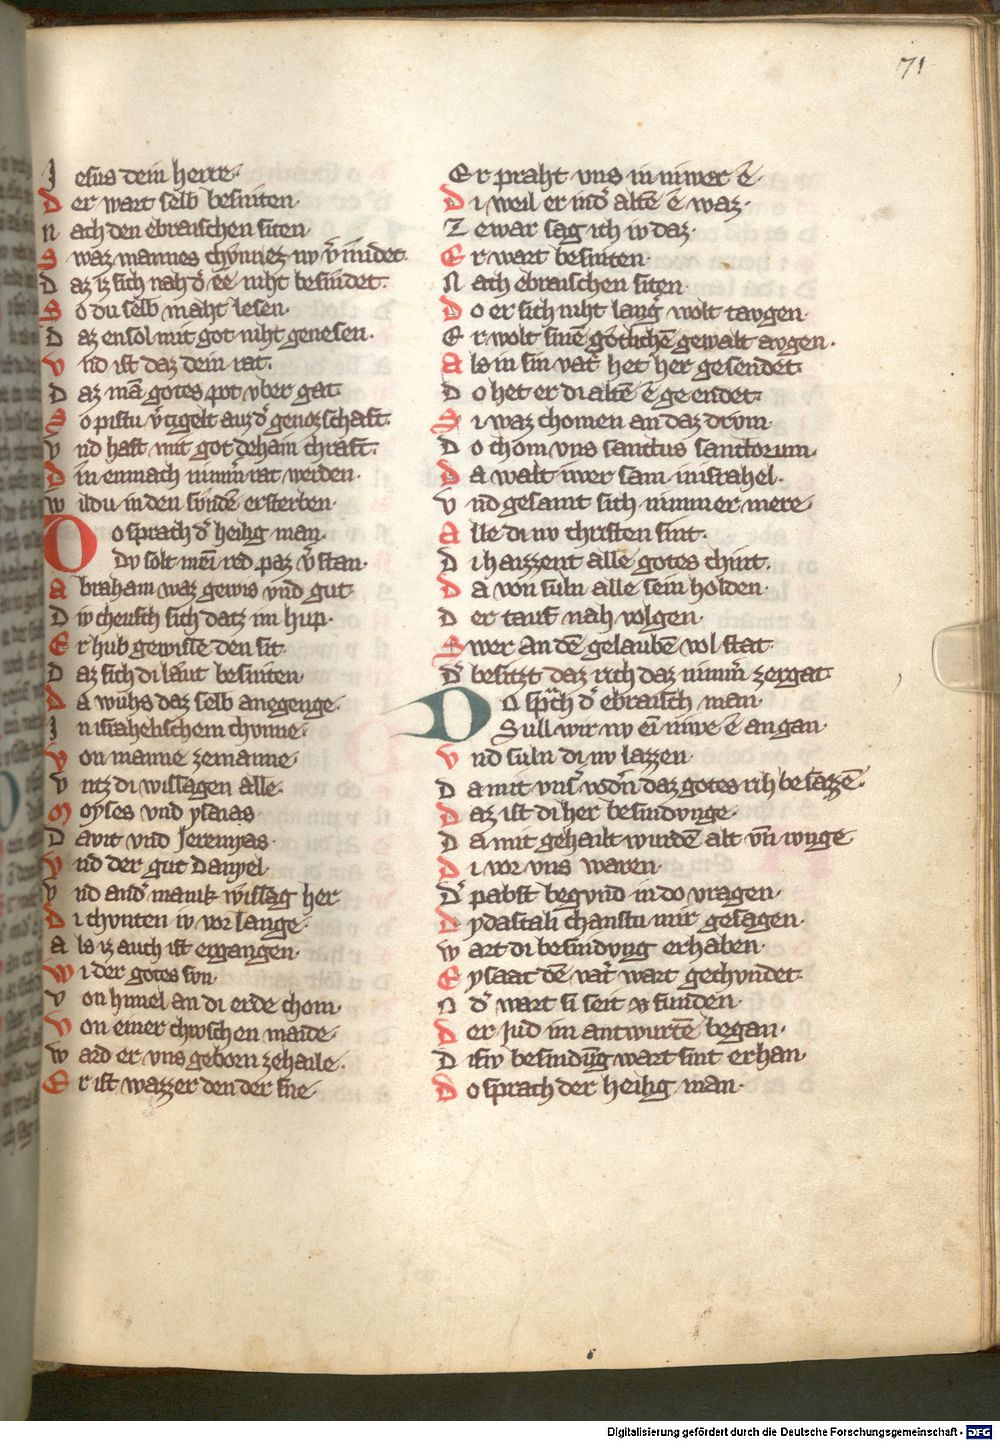 71
Jesus dein herre·
Der wart selb besniten·
Nach den ebraischen siten·
Swaz mannes chunnez nv v̄ midet·
Daz iz sich nah d̾ ēē niht besnidet·
So du selb maht lesen·
Daz ensol mit got niht genesen·
Vnd ist daz dein rat·
Daz mā gotes pot vber gat·
So pistu v̾tigelt auz d̾ genozschaft·
Vnd hast mit got deham chraft·
Din enmach nimm̾ rat werden·
Wildu in den svndē ersterben·
Do sprach d̾ heilig man·
Dv solt mēi red paz v̾stan·
Abraham waz gewis vnd gut·
Div cheusch sich datz im hup·
Er hub gewisse den sit·
Daz sich di laut besniten·
Da wuhs daz selb anegenge·
Jn israhelischem chvnne·
Von manne zemanne·
Vntz di wissagen alle·
Moyses vnd ysaias
Dauit vnd Jeremyas·
Vnd der gut Danyel·
Vnd and̾ manik wissag her
Di chvnten iv vor lange·
Als iz auch ist ergangen·
Wi der gotes svn·
Von himel an di erde chom·
Von einer chvschen maide·
Ward er vns geborn zehaile·
Er ist wazzer den der sne·
Er praht vns in niwer ē·
Di weil er in d̾ altē ē waz·
Zewar sag ich iv daz·
Er wart besniten·
Nach ebraischen siten·
Do er sich niht lang̾ wolt tavgen·
Er wolt sinē gotlichē gewalt avgen·
Als in sin vat̾ het her gesendet·
Do het er di altē ē geendet·
Si waz chomen an daz drvm·
Do chom vns sanctus sanctorum·
Da walt iwer sam in israhel·
Vnd gesamt sich nimmer mere·
Alle di nv christen sint·
Di haizzent alle gotes chint·
Da von suln alle sein holden·
Der tauf nah volgen·
Swer an dē gelaubē vol stat·
D̾ besitzt daz rich daz nimm̾ zergat·
Do sp̾ch d̾ ebraisch man·
Sull wir nv ein niwe ē an gan·
Vnd suln di nv lazzen·
Da mit vns̾ vod̾n daz gotes rih besazzē·
Daz ist di her besnidvnge·
Da mit gehailt wurdē alt vn̄ ivnge·
Di vor vns waren·
D̾ pabst begvnd in do vragen·
Dydascali chanstu mir gesagen·
Wart di besnidvng erhaben·
Eysaac dē vat̾ wart gechvndet·
Der Jud im antwurtē began·
Disiv besnidūg wart sint erhan·
Do sprach der heilig man·
Digitalisierung gefördert durch die Deutsche Forschungsgemeinschaft - DFG